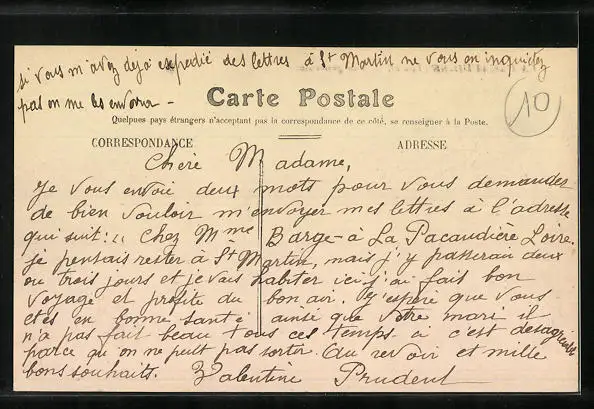 si vous m'avez déjà expédié des lettres à St Martin ne vous en inquietez
pas on me les enverra -
Carte Postale
10
Quelques pays étrangers n'acceptent pas la correspondance de ce côté, se renseigner à la Poste.
CORRESPONDANCE
ADRESSE
Chere Madame,
Je vous envoie deux mots pour vous demander
de bien vouloir m'envoyer mes lettres à l'adresse
qui suit: " Chez Mme Barge - à La Pacaudière Loire.
Je pensais rester à St Martin, mais j'y passerai deux
ou trois jours et je vais habiter ici j'ai fait bon
voyage et profite du bon air. J'espère que vous
etes en bonne santé ainsi que votre mari il
n'a pas fait beau tous ces temps ci c'est desagreable
parce qu'on ne peut pas sortir. Au revoir et mille
bons souhaits. Valentine Prudent